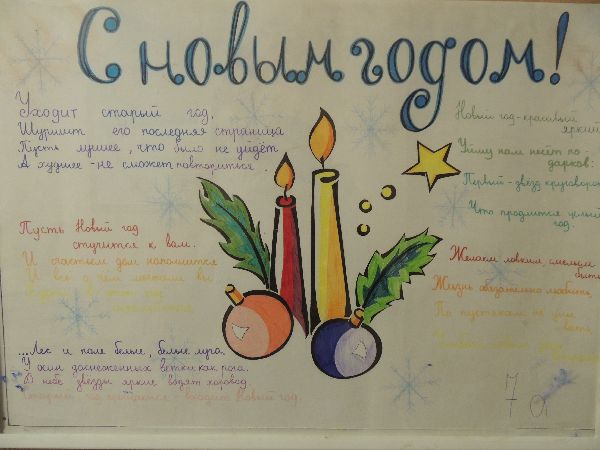 С новым годом!
Уходит старый год,
Шуршит его последняя страница
Пусть лучшее, что было не уйдёт
А худшее - не сможет повториться.
Пусть Новый год
стучится к вам.
И счастьем дом наполнится
И все о чем мечтали вы
...Лес и поле белые, белые луга.
У осин заснеженных ветки как рога.
В небе звезды яркие водят хоровод
Старый год прощается - входит Новый год.
Новый год - красивый
яркий
Уйму нам несёт по-
дарков:
Первый - звёзд круговорот
Что продлится целый
год.
Желаем ловким смелым
быть
Жизнь обязательно любить,
По пустякам не уны
вать,
7 а